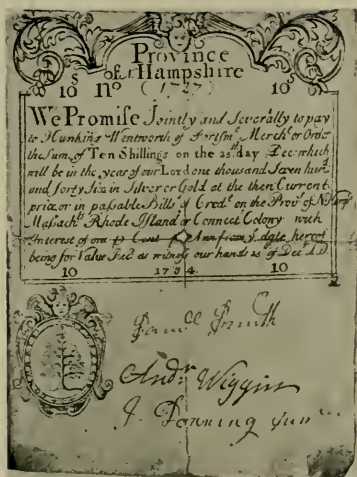 Province
of N Hampshire
10 S No (1727) 10 S
We Promise Jointly and Severally to pay
to Hunking Wentworth of Portsmo Merchᵗ or Order
the Sum of Ten Shillings on the 25th day Decr which
will be in the year of our Lord one thousand Seven hund
and forty Six in Silver or Gold at the then Current
price or in passable Bills of Credᵗ on the Provᵉ of N Hampr
Massachᵗˢ Rhode Island or Connectᵗ Colony with
Interest of one pr Cent pr Annum from ye date hereof
being for Value Recd as witness our hands 25 of Decr AD
10 1734. 10
Andw Wiggin